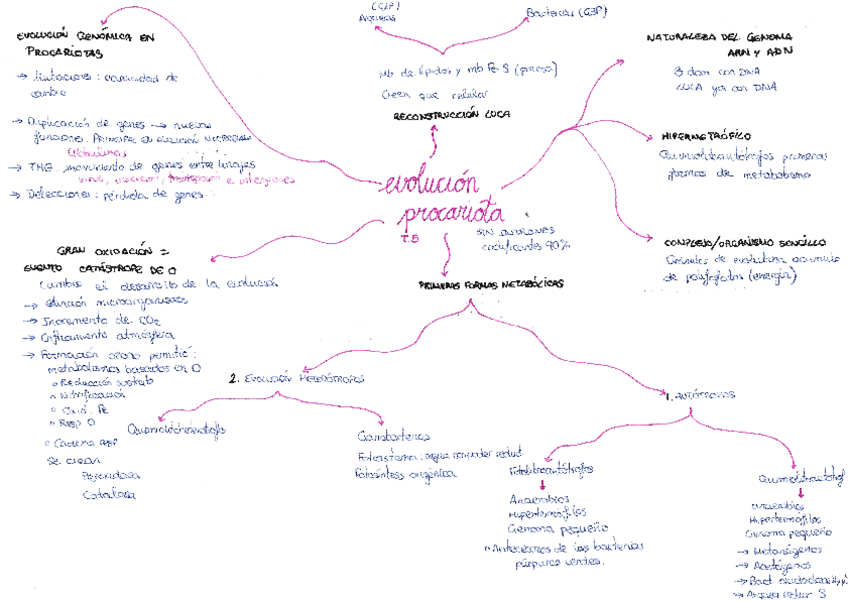 evolución
procariota
T.5
SIN INTRONES
codificantes 90%
EVOLUCIÓN GENÓMICA EN
PROCARIOTAS
→ Mutaciones: capacidad de
cambio
→ Duplicación de genes → nuevas
funciones. PRINCIPAL EN EVOLUCIÓN
→ THG: movimiento de genes entre linajes
virus, inversión, e integrones
→ Delecciones: pérdida de genes
(G1P)
Arqueas
Bacterias (G3P)
Mb de lípidos y mb Fe-S (presa)
Creen que celular
RECONSTRUCCIÓN LUCA
NATURALEZA DEL GENOMA
ARN Y ADN
3 dom con DNA
LUCA ya con DNA
HIPERMETRÓFICO
Quimiolitoautótrofos primeras
formas de metabolismo
COMPLEJO/ORGANISMO SENCILLO
Gránulos de acumulo
de polifosfatos (energía)
GRAN OXIDACIÓN =
EVENTO CATÁSTROFE DE O
Cambia el desarrollo de la evolución
→ Extinción microorganismos
→ Incremento de CO₂
→ Enfriamiento atmósfera
→ Formación ozono permitió:
metabolismos basados en O
○ Reducción sustrato
○ Nitrificación
○ Oxid. Fe
○ Resp O
○ Cadena resp
Se crean
Peroxidasa
Catalasa
PRIMERAS FORMAS METABÓLICAS
2. EVOLUCIÓN HETERÓTROFOS
Cianobacterias
Fotosistema: agua como poder reduct
Fotosíntesis oxigénica
1. AUTÓTROFOS
Fotolitoautótrofos
Anaerobios
Hipertermófilos
Genoma pequeño
○ Antecesores de las bacterias
púrpuras verdes.
Quimiolitoautótrof
anaerobios
Hipertermófilos
Genoma pequeño
→ Metanógenos
→ Acetógenos
→ Bact
→ Arquea reductor S